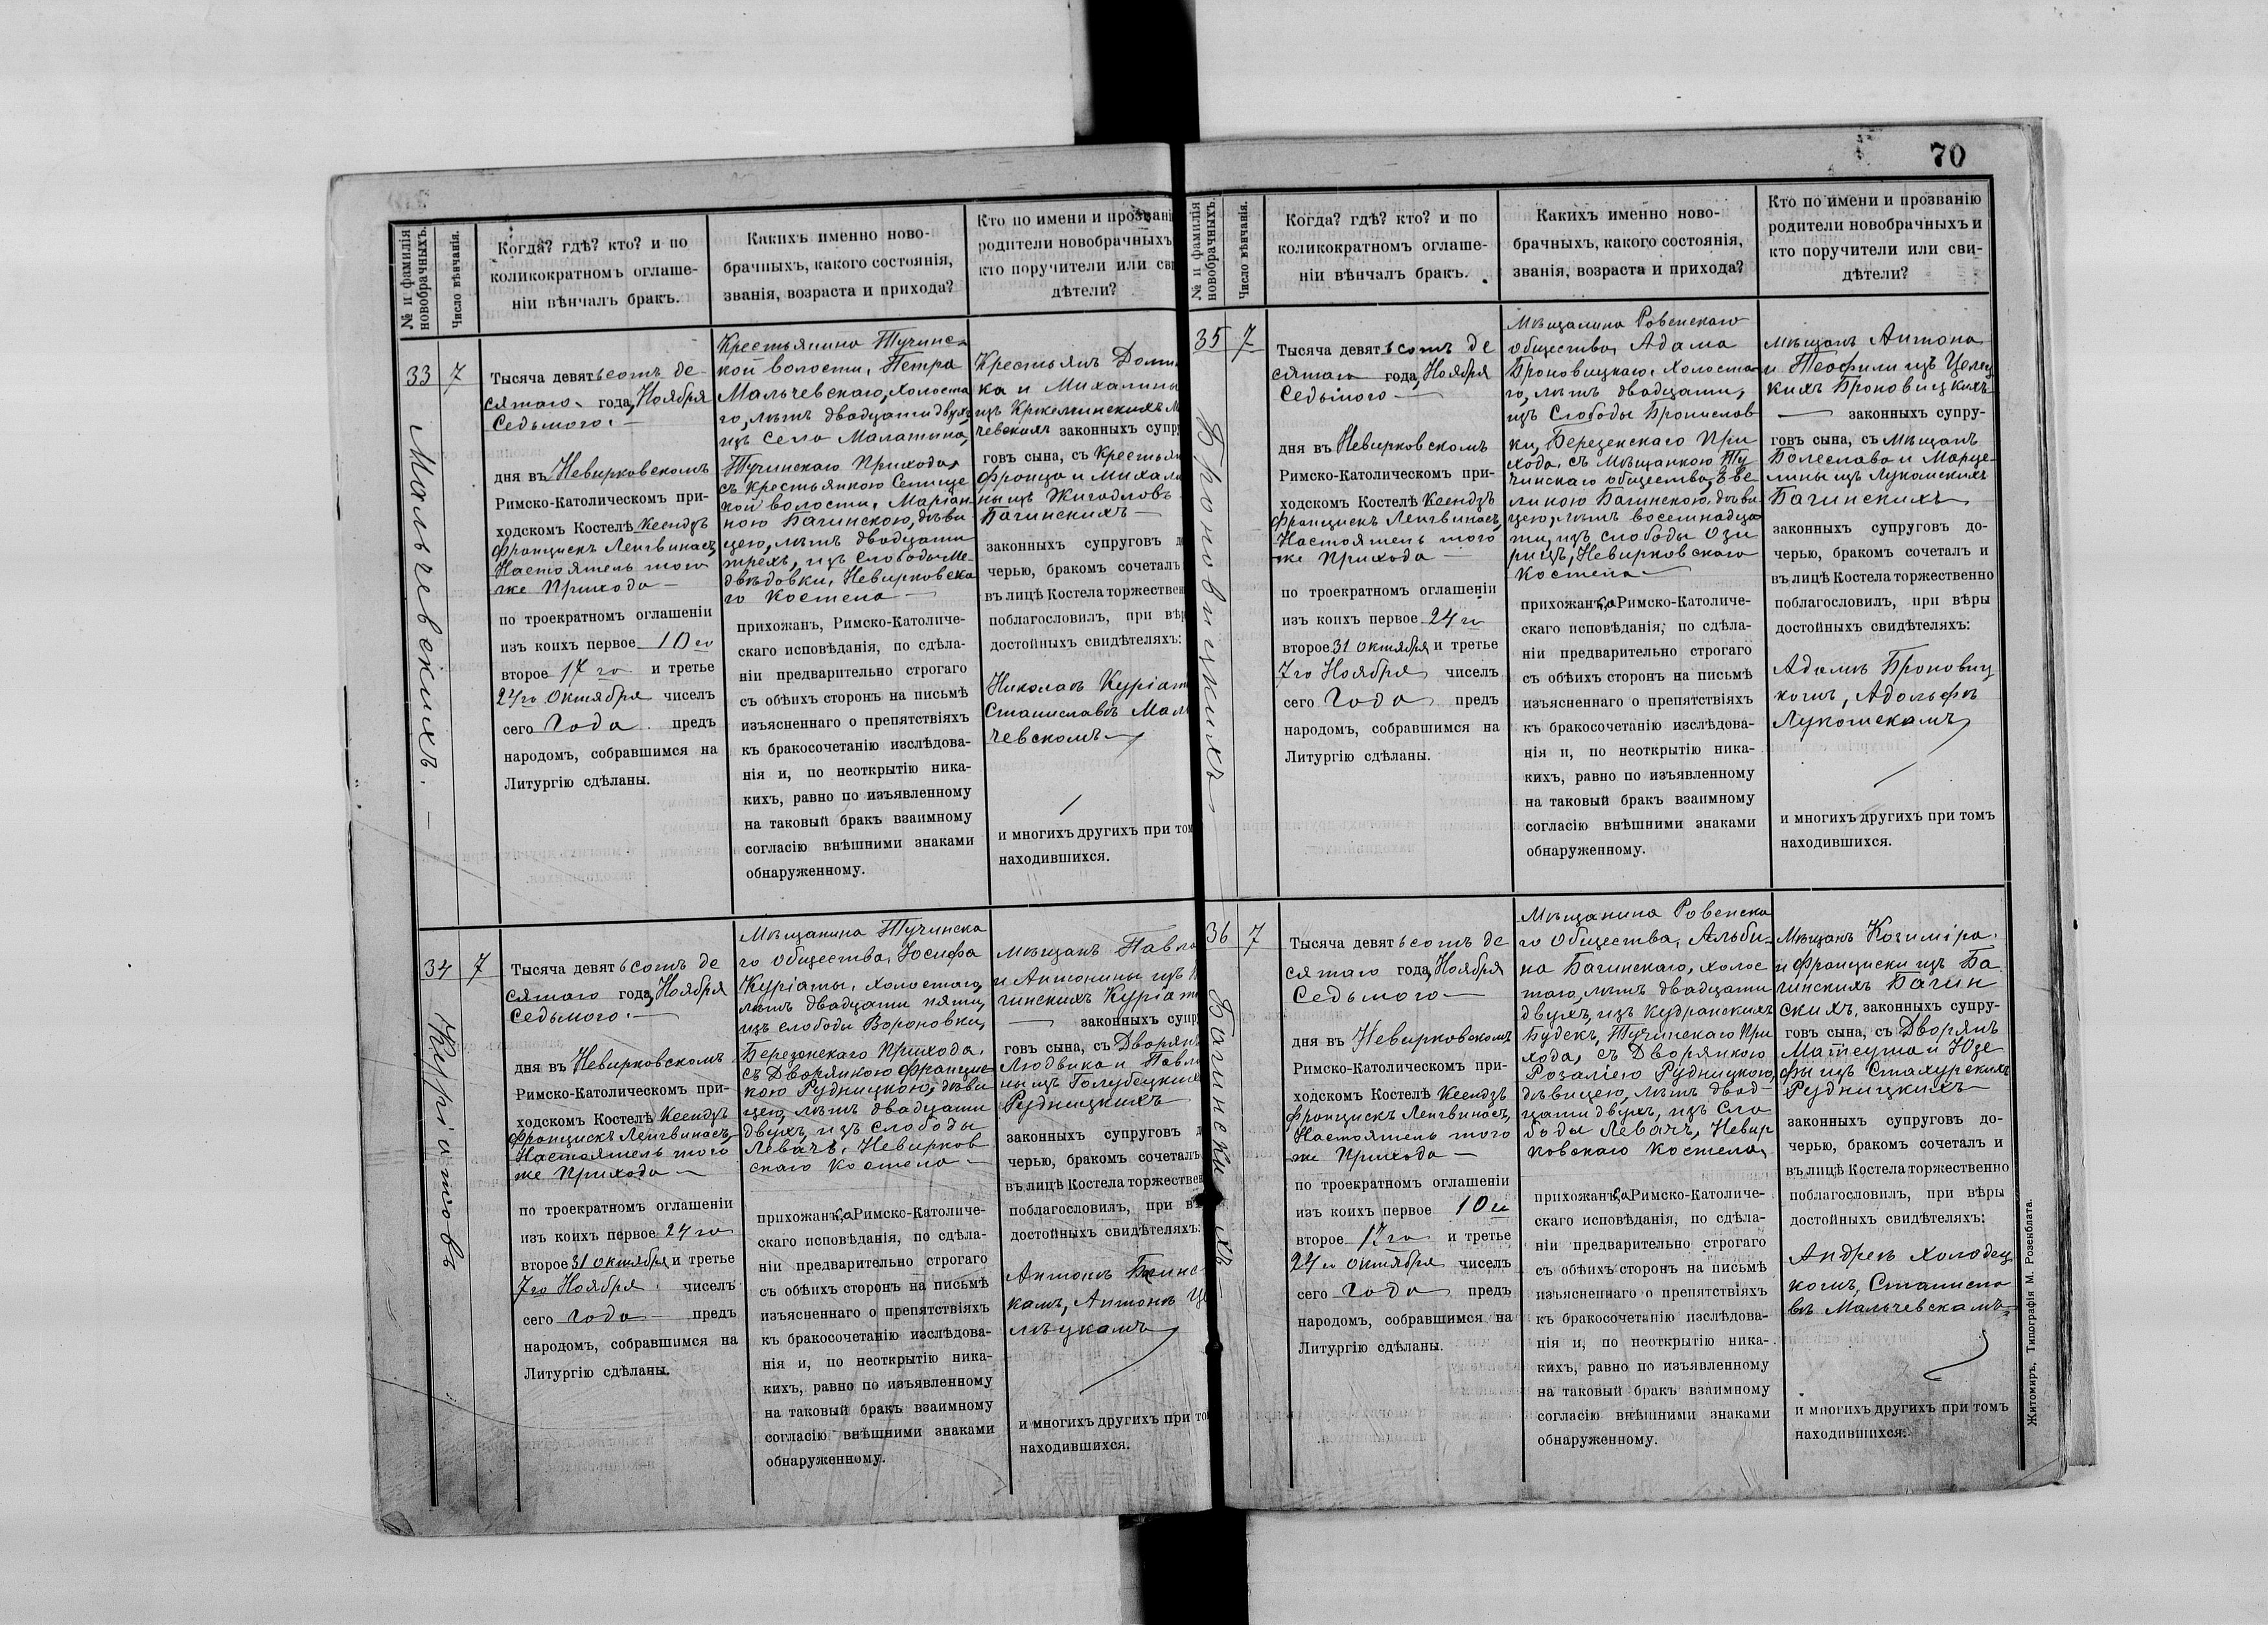 70
№ и фамилія
новобрачныхъ.
Число вѣнчанія.
Когда? гдѣ? кто? и по
коликократномъ оглаше-
ніи вѣнчалъ бракъ.
Какихъ именно ново-
брачныхъ, какого состоянія,
званія, возраста и прихода?
Кто по имени и прозвані
родители новобрачныхъ
кто поручители или сви
дѣтели?
33
7
Мальчевскихъ. —
Тысяча девятьсотъ де-
сятаго года, Ноября
Седьмого. —
дня въ Невирковскомъ
Римско-Католическомъ при-
ходскомъ Костелѣ Ксендзъ
Францискъ Ленгвинасъ,
Настоятель того
же Прихода —
по троекратномъ оглашеніи
изъ коихъ первое 10го
второе 17го и третье
24го Октября чиселъ
сего Года предъ
народомъ, собравшимся на
Литургію сдѣланы.
Крестьянина Тучинс-
кой волости, Петра
Мальчевскаго, холоста
го, лѣтъ двадцати двухъ,
изъ Села Малятина,
Тучинскаго Прихода,
съ Крестьянкою Селище
кой волости, Маріан-
ною Багинскою, дѣви
цею, лѣтъ двадцати
трехъ, изъ Слободы Ме-
двѣдовки, Невирковска
го Костела —
прихожанъ, Римско-Католиче-
скаго исповѣданія, по сдѣла-
ніи предварительно строгаго
съ обѣихъ сторонъ на письмѣ
изъясненнаго о препятствіяхъ
къ бракосочетанію изслѣдова-
нія и, по неоткрытію ника-
кихъ, равно по изъявленному
на таковый бракъ взаимному
согласію внѣшними знаками
обнаруженному.
Крестьянъ Доми
ка и Михалины
изъ М
чевскихъ законныхъ супр
говъ сына, съ Крестьян
Франца и Михали
ны изъ Жигадловъ
Багинскихъ —
законныхъ супруговъ д
черью, бракомъ сочеталъ
въ лицѣ Костела торжествен
поблагословилъ, при вѣр
достойныхъ свидѣтеляхъ:
Николаѣ Куріат
Станиславѣ Мал
чевскомъ —
и многихъ другихъ при том
находившихся.
34
7
Куріатовъ
Тысяча девятьсотъ де
сятаго года, Ноября
Седьмого. —
дня въ Невирковскомъ
Римско-Католическомъ при-
ходскомъ Костелѣ Ксендзъ
Францискъ Ленгвинасъ,
Настоятель того
же Прихода —
по троекратномъ оглашеніи
изъ коихъ первое 24го
второе 31 октября и третье
7го Ноября чиселъ
сего Года — предъ
народомъ, собравшимся на
Литургію сдѣланы.
Мѣщанина Тучинска
го Общества, Іосифа
Куріаты, холостаго,
лѣтъ двадцати пяти,
изъ слободы Вороновки,
Березнскаго Прихода,
съ Дворянкою Францис
кою Рудницкою, дѣви
цею, лѣтъ двадцати
двухъ, изъ Слободы
Левачъ, Невирков
скаго Костела —
прихожанъ, Римско-Католиче-
скаго исповѣданія, по сдѣла-
ніи предварительно строгаго
съ обѣихъ сторонъ на письмѣ
изъясненнаго о препятствіяхъ
къ бракосочетанію изслѣдова-
нія и, по неоткрытію ника-
кихъ, равно по изъявленному
на таковый бракъ взаимному
согласію внѣшними знаками
обнаруженному.
Мѣщанъ Павла
и Антонины изъ
гинскихъ Куріат
— законныхъ супр
говъ сына, съ Дворянъ
Людвика и Павли
ны изъ Голубецкихъ
Рудницкихъ —
законныхъ супруговъ д
черью, бракомъ сочеталъ
въ лицѣ Костела торжествен
поблагословилъ, при в
достойныхъ свидѣтеляхъ:
Антонѣ
камъ, Антонѣ Це
лѣцкамъ
и многихъ другихъ при то
находившихся.
№ и фамилія
новобрачныхъ.
Число вѣнчанія.
Когда? гдѣ? кто? и по
коликократномъ оглаше-
ніи вѣнчалъ бракъ.
Какихъ именно ново-
брачныхъ, какого состоянія,
званія, возраста и прихода?
Кто по имени и прозванію
родители новобрачныхъ и
кто поручители или сви-
дѣтели?
35
7
Броновицкихъ
Тысяча девятьсотъ де
сятаго года, Ноября
Седьмого —
дня въ Невирковскомъ
Римско-Католическомъ при-
ходскомъ Костелѣ Ксендзъ
Францискъ Ленгвинасъ,
Настоятель того
же Прихода —
по троекратномъ оглашеніи
изъ коихъ первое 24го
второе 31 октября и третье
7го Ноября чиселъ
сего Года предъ
народомъ, собравшимся на
Литургію сдѣланы.
Мѣщанина Ровенскаго
общества, Адама
Броновицкаго, холоста
го, лѣтъ двадцати,
изъ Слободы Бронислав
ки, Березенскаго При
хода, съ Мѣщанкою Ту
чинскаго общества, Эве
линою Багинскою, дѣви
цею, лѣтъ восемнадца
ти, изъ слободы Ози
рицъ, Невирковскаго
Костела —
прихожанъ, Римско-Католиче-
скаго исповѣданія, по сдѣла-
ніи предварительно строгаго
съ обѣихъ сторонъ на письмѣ
изъясненнаго о препятствіяхъ
къ бракосочетанію изслѣдова-
нія и, по неоткрытію ника-
кихъ, равно по изъявленному
на таковый бракъ взаимному
согласію внѣшними знаками
обнаруженному.
Мѣщанъ Антона
и Теофили изъ Целец
кихъ Броновицкихъ
— законныхъ супру-
говъ сына, съ Мѣщанъ
Болеслава и Марце-
лины изъ Лукомскихъ
Багинскихъ
законныхъ супруговъ до-
черью, бракомъ сочеталъ и
въ лицѣ Костела торжественно
поблагословилъ, при вѣры
достойныхъ свидѣтеляхъ:
Адамѣ Броновиц
комъ, Адольфѣ
Лукомскамъ
и многихъ другихъ при томъ
находившихся.
36
7
Багинскихъ
Тысяча девятьсотъ де
сятаго года, Ноября
Седьмого —
дня въ Невирковскомъ
Римско-Католическомъ при-
ходскомъ Костелѣ Ксендзъ
Францискъ Ленгвинасъ,
Настоятель того
же Прихода —
по троекратномъ оглашеніи
изъ коихъ первое 10го
второе 17го и третье
24го октября чиселъ
сего Года предъ
народомъ, собравшимся на
Литургію сдѣланы.
Мѣщанина Ровенска
го Общества, Альби-
на Багинскаго, холос
таго, лѣтъ двадцати
двухъ, изъ Кудранскихъ
Будекъ, Тучинскаго При
хода, съ Дворянкою
Розаліею Рудницкою,
дѣвицею, лѣтъ двад-
цати двухъ, изъ Сло
боды Левачъ, Невир
ковскаго Костела,
прихожанъ, Римско-Католиче-
скаго исповѣданія, по сдѣла-
ніи предварительно строгаго
съ обѣихъ сторонъ на письмѣ
изъясненнаго о препятствіяхъ
къ бракосочетанію изслѣдова-
нія и, по неоткрытію ника-
кихъ, равно по изъявленному
на таковый бракъ взаимному
согласію внѣшними знаками
обнаруженному.
Мѣщанъ Козиміра
и Франциски изъ Ба
гинскихъ Багин
скихъ, законныхъ супру-
говъ сына, съ Дворянъ
Матеуша и Юзе
фы изъ Стахурскихъ
Рудницкихъ —
законныхъ супруговъ до-
черью, бракомъ сочеталъ и
въ лицѣ Костела торжественно
поблагословилъ, при вѣры
достойныхъ свидѣтеляхъ:
Андреѣ Холодец
комъ, Станисла
вѣ Мальчевскамъ
и многихъ другихъ при томъ
находившихся.
Житомиръ, Типографія М. Розенблата.